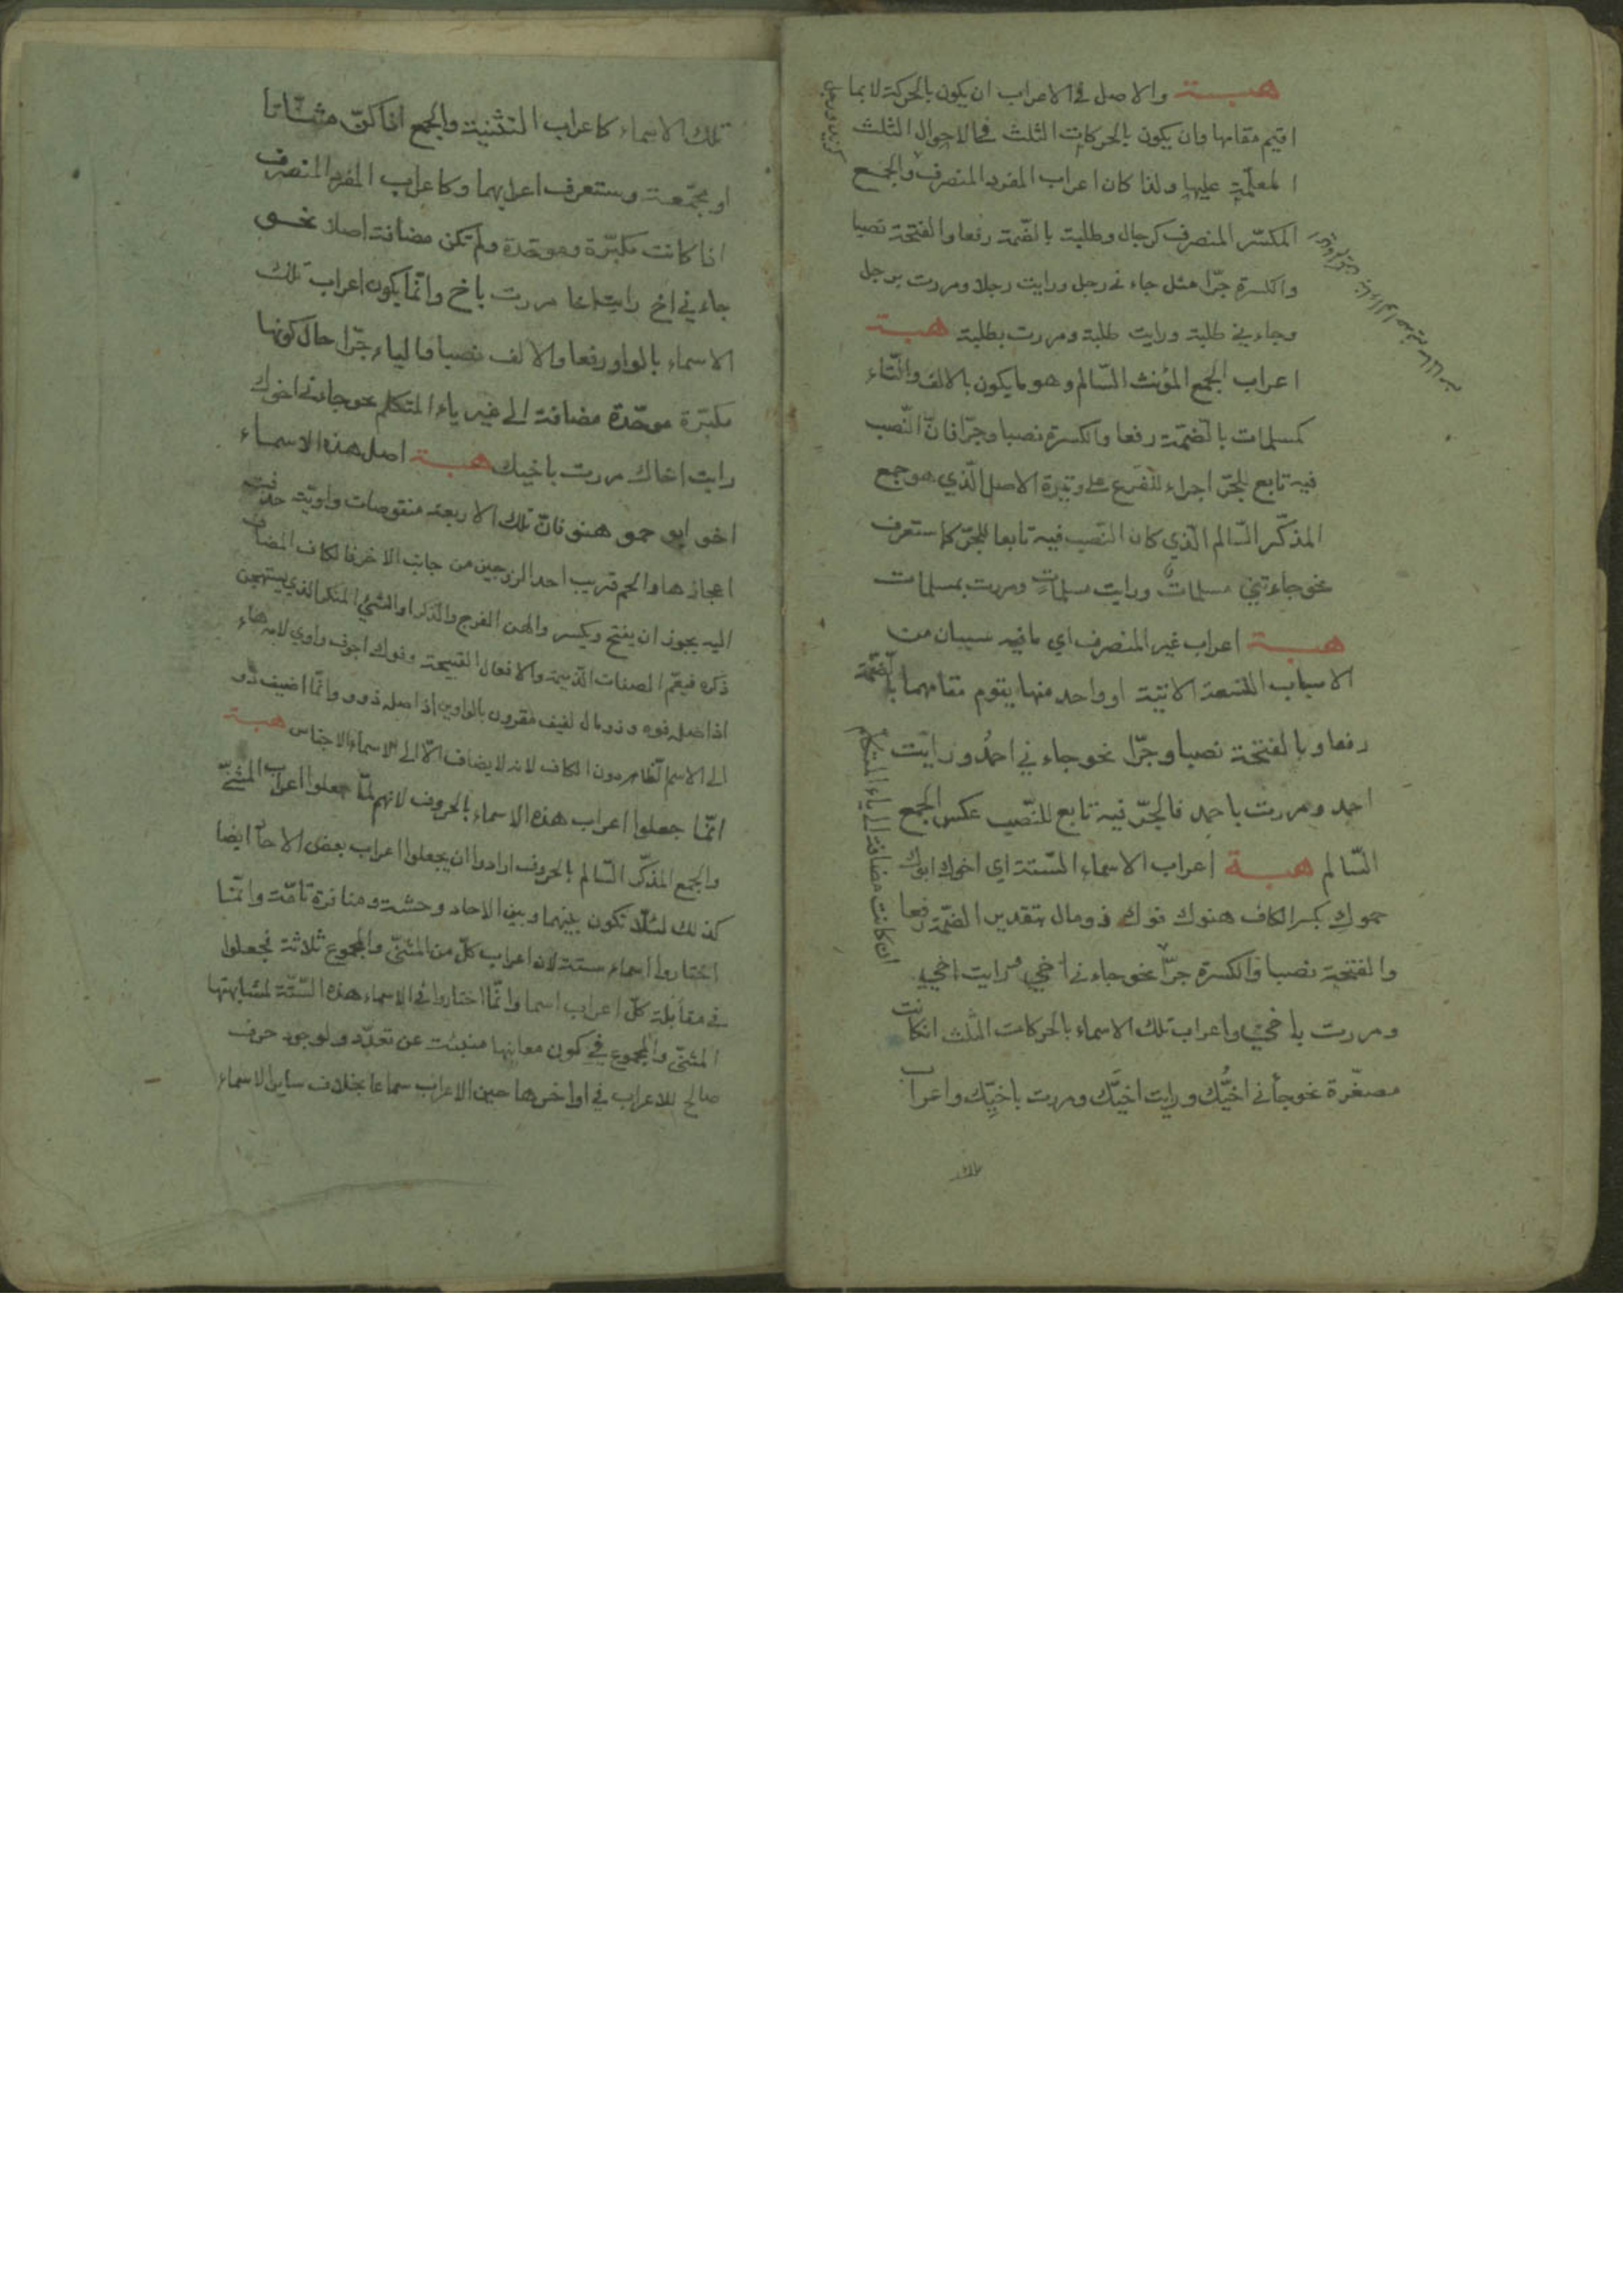 هبة والاصل في الاعراب ان يكون بالحركة لا بما
اقيم مقامها وان يكون بالحركات الثلث في الاحوال الثلث
عليها ولذا كان اعراب المفرد المنصرف والجمع
المكسّر المنصرف كرجال وطلبة بالضّمة رفعا والفتحة نصبا
والكسرة جرّا مثل جاءني رجل ورايت رجلا ومررت برجل
وجاءني طلبة ورايت طلبة ومررت بطلبة هبة
اعراب الجمع المؤنث السّالم وهو ما يكون بالالف والتّاء
كمسلمات بالضّمّة رفعا والكسرة نصبا وجرّا فانّ النّصب
فيه تابع للجرّ اجراء للفرع على وتيرة الاصل الّذي هو جمع
المذكّر السّالم الّذي كان النّصب فيه تابعا للجرّ كما ستعرف
نحو جاءتني مسلماتٌ ورايت مسلماتٍ ومررت بمسلمات
هبة اعراب غير المنصرف اي ما فيه سببان من
الاسباب التسعة الاتية او واحد منها يقوم مقامهما بالضّمّة
رفعا وبالفتحة نصبا وجرّا نحو جاءني احمدُ ورايت
احمد ومررت باحمد فالجرّ فيه تابع للنّصب عكس الجمع
السّالم هبة اعراب الاسماء السّتة اي اخوك ابوك
حموكِ بكسر الكاف هنوك فوك ذو مال بتقدير الضمّة رفعا
والفتحة نصبا والكسرة جرّا نحو جاءني اخي ورايت اخي
ومررت باخي واعراب تلك الاسماء بالحركات الثلث ان كانت
مصغّرة نحو جاءني اخيُّك ورايت اخيَّك ومررت باخيِّك واعراب
ان كانت مضافة الى ياء المتكلم
تلك الاسماء كاعراب التثنية والجمع اذا كنّ مثنّاتا
او مجمّعة وستعرف اعرابهما وكاعراب المفرد المنصرف
اذا كانت مكبّرة وموحّدة ولم تكن مضافة اصلا نحو
جاءني اخ رايت اخا مررت باخ وانّما يكون اعراب تلك
الاسماء بالواو رفعا والالف نصبا والياء جرّا حال كونها
مكبّرة موحّدة مضافة الى غير ياء المتكلم نحو جاءني اخوك
رايت اخاك مررت باخيك هبة اصل هذه الاسماء
اخو ابو حمو هنو فانّ تلك الاربعة منقوصات واويّة حذفت
اعجازها والحم قريب احد الزوجين من جانب الاخر فالكاف المضاف
اليه يجوز ان يفتح ويكسر والهن الفرج والذكر او الشيء المنكر الذي يستهجن
ذكره فيعمّ الصفات الذميمة والافعال القبيحة وفوك اجوف واوي لامه هاء
اذ اصله فوه وذو مال لفيف مقرون بالواوين اذ اصله ذوو وانّما اضيف ذو
الى الاسم الظاهر دون الكاف لانه لا يضاف الّا الى الاسماء الاجناس هبة
انّما جعلوا اعراب هذه الاسماء بالحروف لانهم لمّا جعلوا اعراب المثنّى
والجمع المذكّر السّالم بالحروف ارادوا ان يجعلوا اعراب بعض الاحاد ايضا
كذلك لئلّا تكون بينهما وبين الاحاد وحشة ومنافرة تامّة وانّما
اختاروا اسماء ستة لان اعراب كلّ من المثنّى والمجموع ثلاثة فجعلوا
في مقابلة كلّ اعراب اسما وانّما اختاروا في الاسماء هذه السّتّة لمشابهتها
المثنّى والمجموع في كون معانيها منبئة عن تعدّد ولوجود حرف
صالح للاعراب في اواخرها حين الاعراب سماعا بخلاف ساير الاسماء